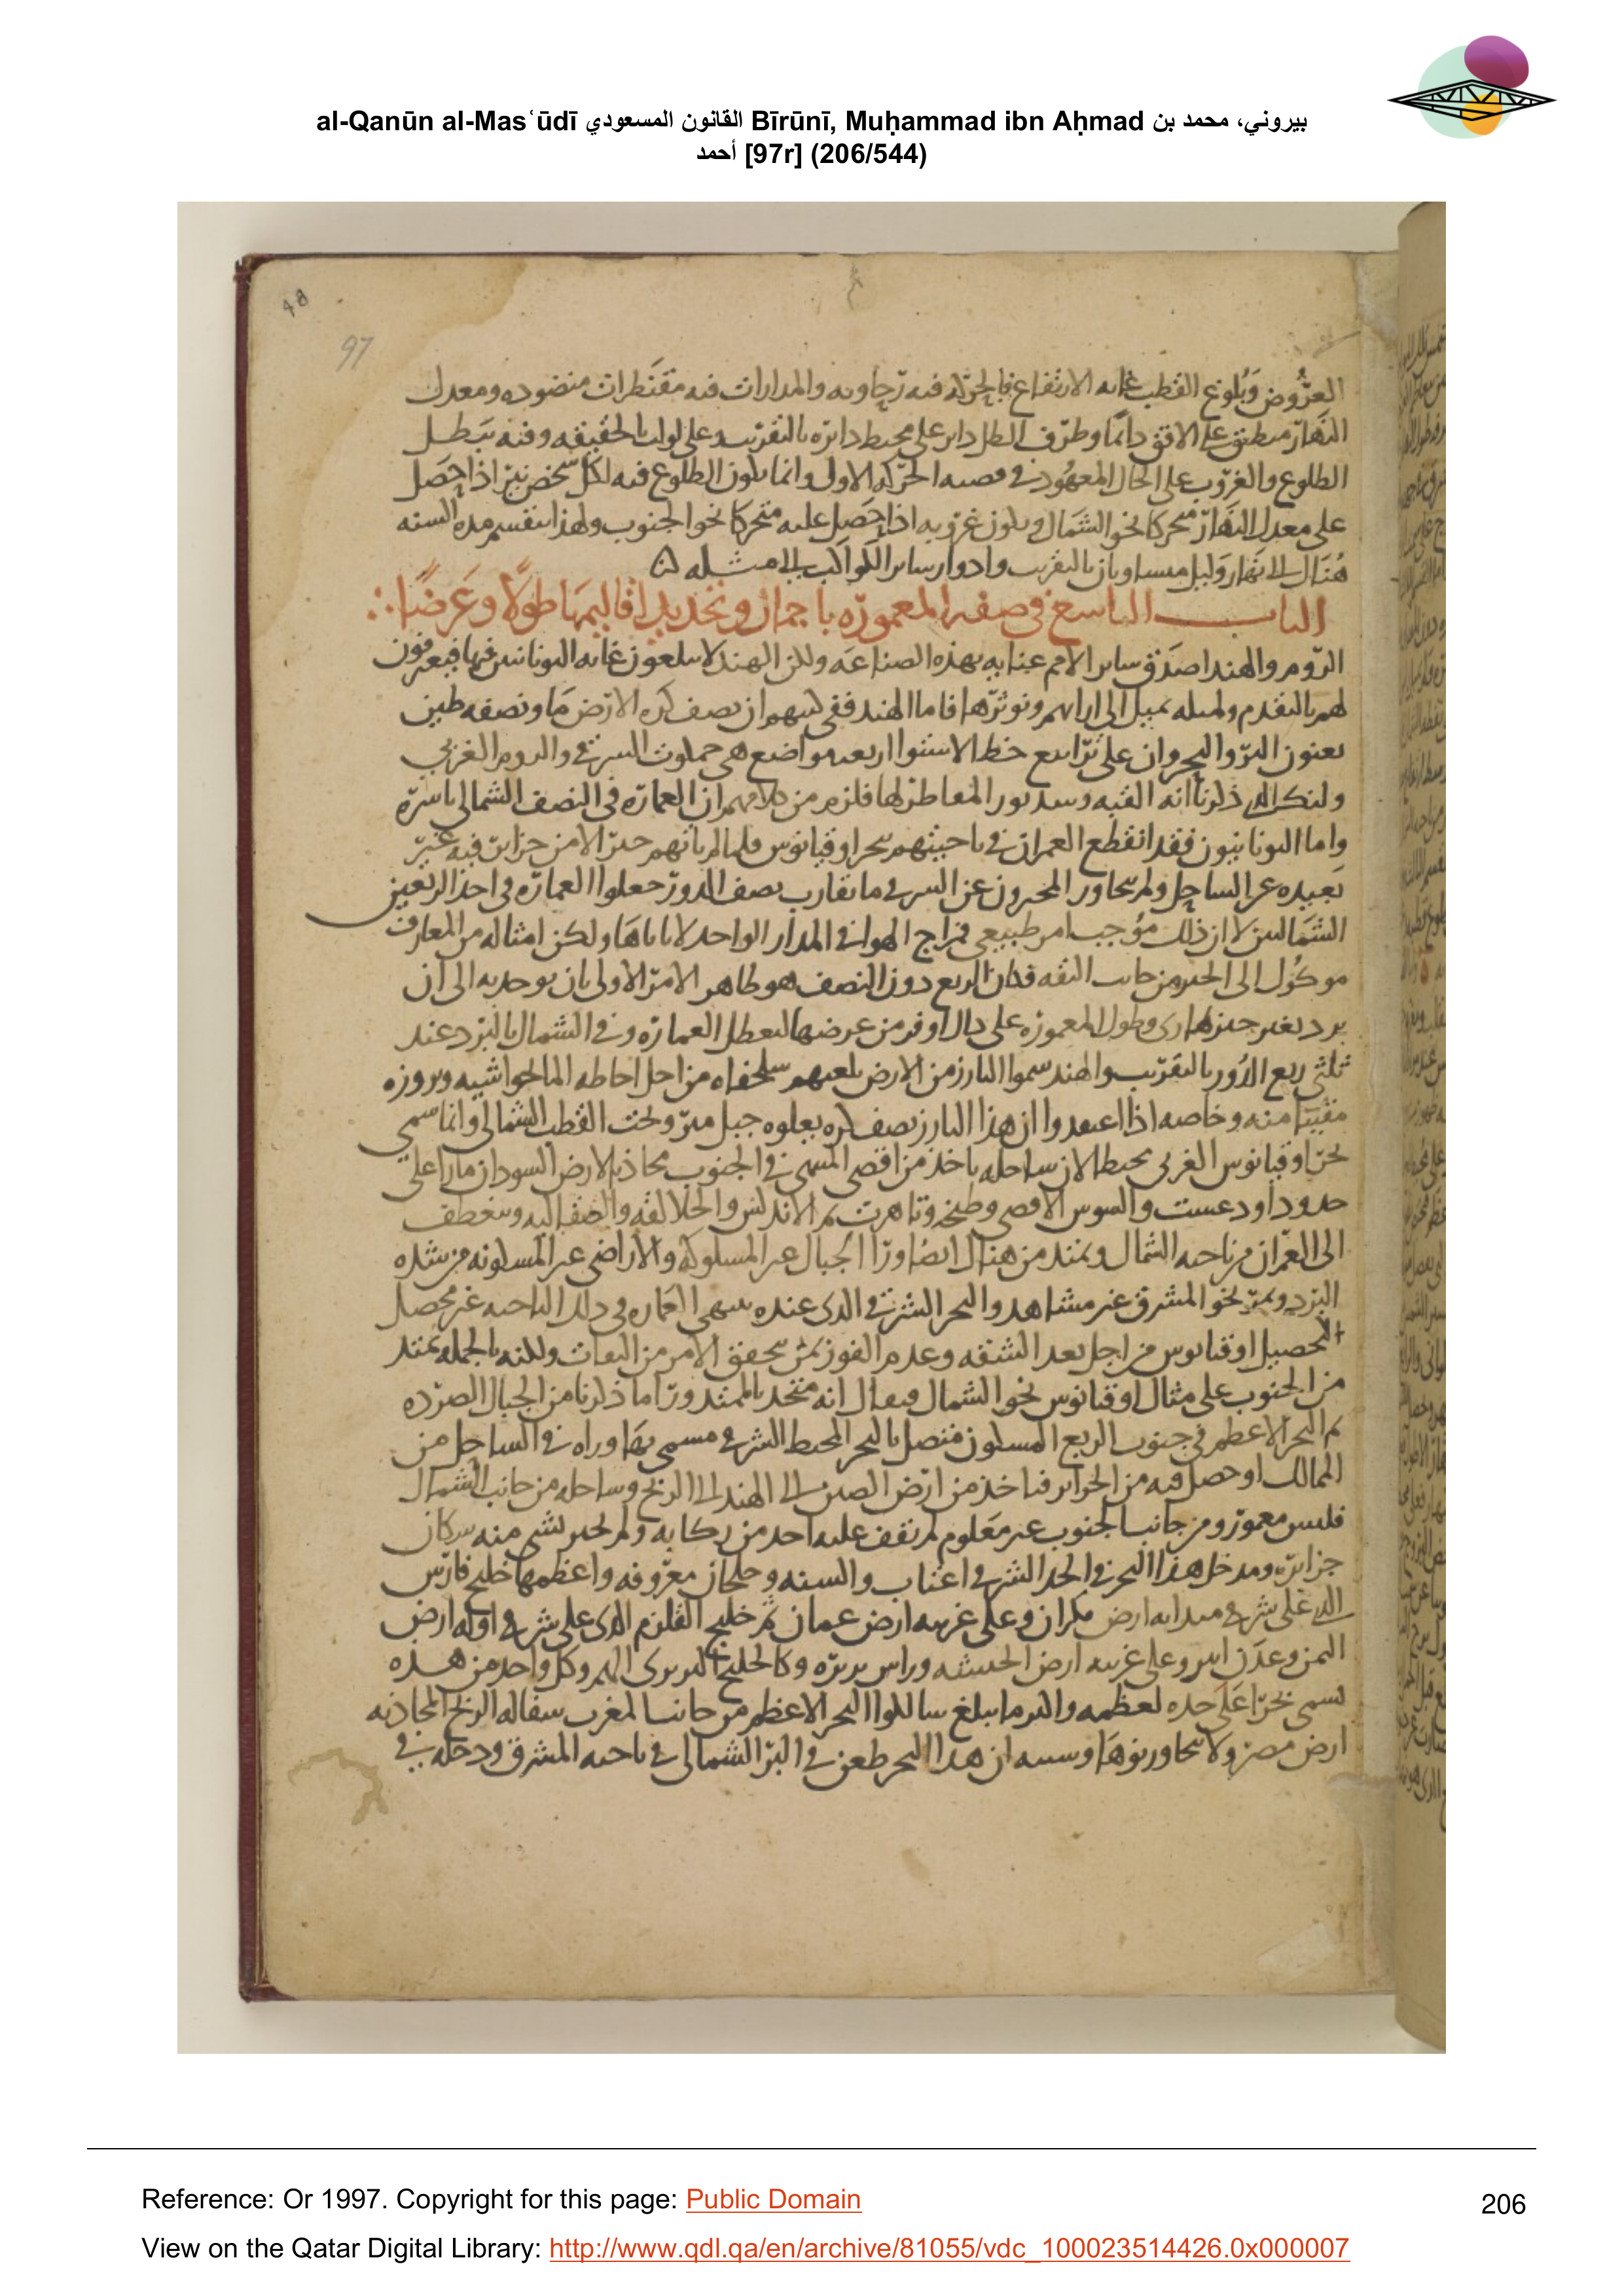 al-Qanūn al-Masʿūdī القانون المسعودي Bīrūnī, Muḥammad ibn Aḥmad بيروني، محمد بن
أحمد [97r] (206/544)
98
97
العروض وبلوغ القطب غاية الارتفاع فالحركة فيه رحاوية والمدارات فيه مقنطرات منضودة ومعدل
النهار منطبق على الافق دائما وطرف الظل دائر على محيط دائرة بالتقريب وعلى لولب بالحقيقة وفيه يبطل
الطلوع والغروب على الحال المعهود في قضية الحركة الاولى وانما يكون الطلوع فيه لكل شخص نير اذا حصل
على معدل النهار متحركا نحو الشمال ويكون غروبه اذا حصل عليه متحركا نحو الجنوب ولهذا ينقسم مدة السنة
هناك الى نهار وليل متساويان بالتقريب وادوار سائر الكواكب الى مثله
الباب التاسع في صفة المعمورة باجمال وتحديد اقاليمها طولا وعرضا
الروم والهند اصدق سائر الامم عناية بهذه الصناعة ولكن الهند لا يبلغون غاية اليونانيين فيها فيعرفون
لهم بالتقدم ولمثله نميل الى ارائهم ونوثرها فاما الهند ففي كتبهم ان نصف كرة الارض ما ونصفه طين
يعنون البر والبحر وان على ترابيع خط الاستوا اربعة مواضع هي جملوت الشرقي والروم الغربي
ولنك الذي ذكرنا انه القبة وسدبور المقاطر لها فلزم من كلامهم ان العمارة في النصف الشمالي باسره
واما اليونانيون فقد انقطع العمران في ناحيتهم ببحر اوقيانوس فلما لم ياتهم خبر الا من جزاير فيه غير
بعيدة عن الساحل ولم يتجاوز المخبرون عن الشرق ما يقارب نصف الدور جعلوا العمارة في احد الربعين
الشماليين لا ان ذلك موجب امر طبيعي فمزاج الهوا في المدار الواحد لا يتباين ولكن امثاله من المعارف
موكول الى الخبر من جانب الثقة فكان الربع دون النصف هو ظاهر الامر الاولى بان يوخذ به الى ان
يرد لغيره خبر طارئ وطول المعمورة على ذلك اوفر من عرضها لتعطل العمارة في الشمال بالبرد عند
ثلثي ربع الدور بالتقريب والهند سموا البارز من الارض بلغتهم سلحفاة من اجل احاطة الما لحواشيه وبروزه
مقببا منه وخاصة اذا اعتقدوا ان هذا البارز نصف كرة يعلوه جبل ميرو تحت القطب الشمالي وانما سمي
بحر اوقيانوس الغربي محيطا لان ساحله ياخذ من اقصى المنتهى في الجنوب محاذيا لارض السودان مارا على
حدود اودغست والسوس الاقصى وطنجة وتاهرت ثم الاندلس والجلالقة والصقالبة وينعطف
الى العمران من ناحية الشمال ويمتد من هناك ايضا ورا الجبال غير المسلوكة والاراضي غير المسكونة من شدة
البرد ويمر نحو المشرق غير مشاهد والبحر الشرقي الذي عنده ينتهي العمارة في تلك الناحية غير محصل
التحصيل اوقيانوس من اجل بعد الشقة وعدم الفوز بمن يحقق الامر من الثقات ولكنه بالجملة يمتد
من الجنوب على مثال اوقيانوس نحو الشمال ويقال انه متحد بالممتد ورا ما ذكرنا من الجبال الصردة
ثم البحر الاعظم في جنوب الربع المسكون متصل بالبحر المحيط الشرقي مسمى بما وراه في الساحل من
الممالك او حصل فيه من الجزاير فياخذ من ارض الصين الى الهند الى الزنج وساحله من جانب الشمال
فليس معمور ومن جانب الجنوب غير معلوم لم يقف عليه احد من ركابه ولم يخبر بشي منه سكان
جزايره ومدخل هذا البحر في الحد الشرقي اعتاب والسنة وخلجان معروفة واعظمها خليج فارس
الذي على شرقي مبدايه ارض مكران وعلى غربيه ارض عمان ثم خليج القلزم الذي على شرقي اوله ارض
اليمن وعدن ابين وعلى غربيه ارض الحبشة وراس بربره وكالخليج البربري اليهم وكل واحد من هذه
يسمى بحرا على حده لعظمه واكثر ما يبلغ سالكوا البحر الاعظم من جانب المغرب سفالة الزنج المحاذية
ارض مصر ولا يتجاوزونها وسببه ان هذا البحر طعن في البر الشمالي في ناحية المشرق ودخله في
Reference: Or 1997. Copyright for this page: Public Domain
206
View on the Qatar Digital Library: http://www.qdl.qa/en/archive/81055/vdc_100023514426.0x000007